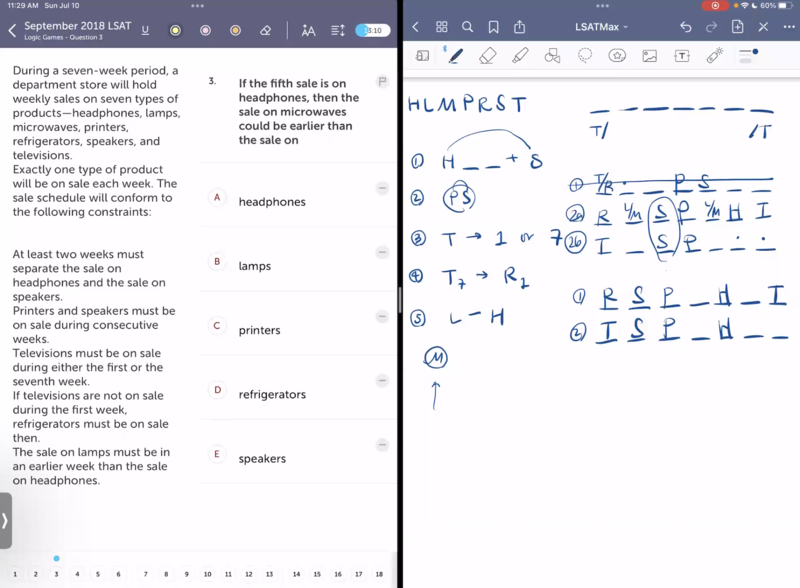 11:29 AM Sun Jul 10
60%
September 2018 LSAT
Logic Games - Question 3
U
AA
3:10
LSATMax
During a seven-week period, a
department store will hold
weekly sales on seven types of
products—headphones, lamps,
microwaves, printers,
refrigerators, speakers, and
televisions.
Exactly one type of product
will be on sale each week. The
sale schedule will conform to
the following constraints:
At least two weeks must
separate the sale on
headphones and the sale on
speakers.
Printers and speakers must be
on sale during consecutive
weeks.
Televisions must be on sale
during either the first or the
seventh week.
If televisions are not on sale
during the first week,
refrigerators must be on sale
then.
The sale on lamps must be in
an earlier week than the sale
on headphones.
3.
If the fifth sale is on
headphones, then the
sale on microwaves
could be earlier than
the sale on
A headphones
B lamps
C printers
D refrigerators
E speakers
1 2 3 4 5 6 7 8 9 10 11 12 13 14 15 16 17 18
HLMPRST
T/ /T
① H _ _ + S
② PS
③ T → 1 or 7
④ T7 → R1
⑤ L – H
M
① T/R _ _ P S _ _
2a R L/M S P L/M H T
2b T _ S P _ _ _
① R S P _ H _ T
② T S P _ H _ _